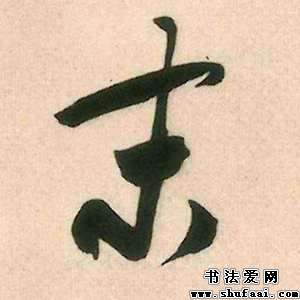 末
书法爱网
www.shufaai.com